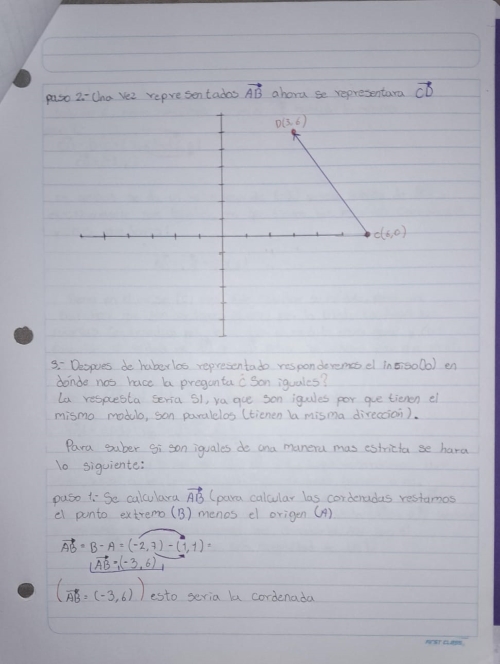 paso 2.- Una vez representados AB ahora se representara CD
D(3,6)
C(6,0)
3.- Despues de haberlos representado responderemos el Insiso(b) en
dónde nos hace la pregunta ¿Son iguales?
La respuesta seria SI, ya que son iguales por que tienen el
mismo modulo, son paralelos (tienen la misma dirección).
Para saber si son iguales de una manera mas estricta se hara
lo siguiente:
paso 1.- Se calculara AB (para calcular las cordenadas restamos
el punto extremo (B) menos el origen (A)
AB = B - A = (-2,7) - (1,1) =
AB = (-3,6)
(AB = (-3,6)) esto seria la cordenada